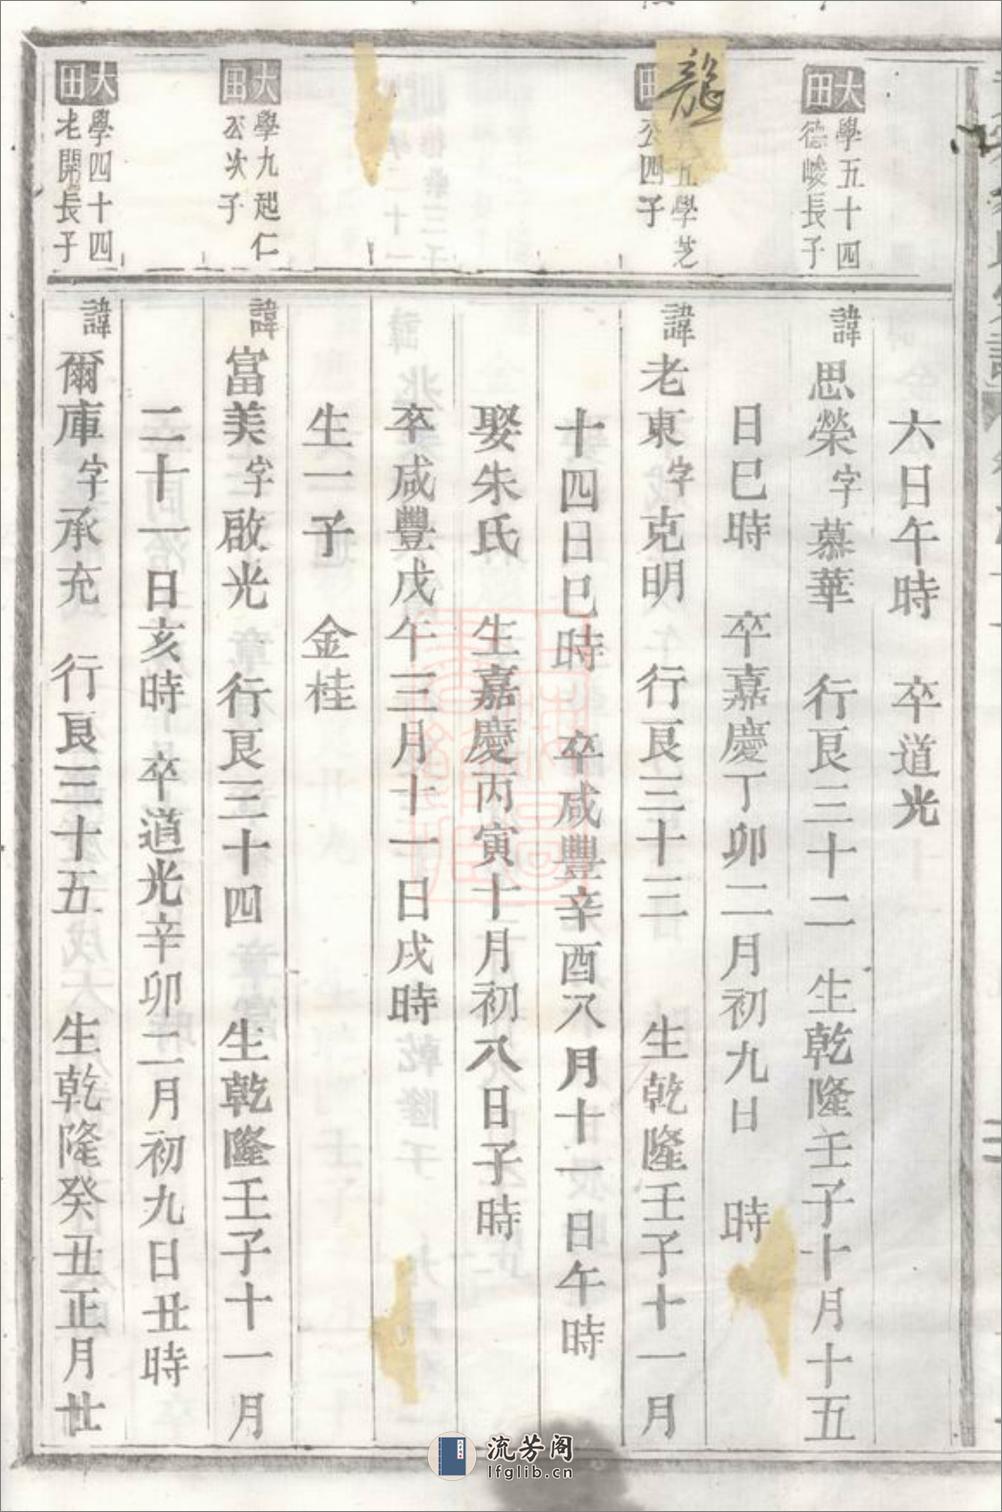 六日午時　卒道光
大田
學五十四
德峻長子
諱思榮字慕華　行艮三十二　生乾隆壬子十月十五
日巳時　卒嘉慶丁卯二月初九日　時
龍
田
五學芝
公四子
諱老東字克明　行艮三十三　生乾隆壬子十一月
十四日巳時　卒咸豐辛酉八月十一日午時
娶朱氏　生嘉慶丙寅十月初八日子時
卒咸豐戊午三月十一日戌時
生一子　金桂
大田
學九起仁
公次子
諱富美字啟光　行艮三十四　生乾隆壬子十一月
二十一日亥時　卒道光辛卯二月初九日丑時
大田
學四十四
老開長子
諱爾庫字承充　行艮三十五　生乾隆癸丑正月廿
流芳阁
lfglib.cn